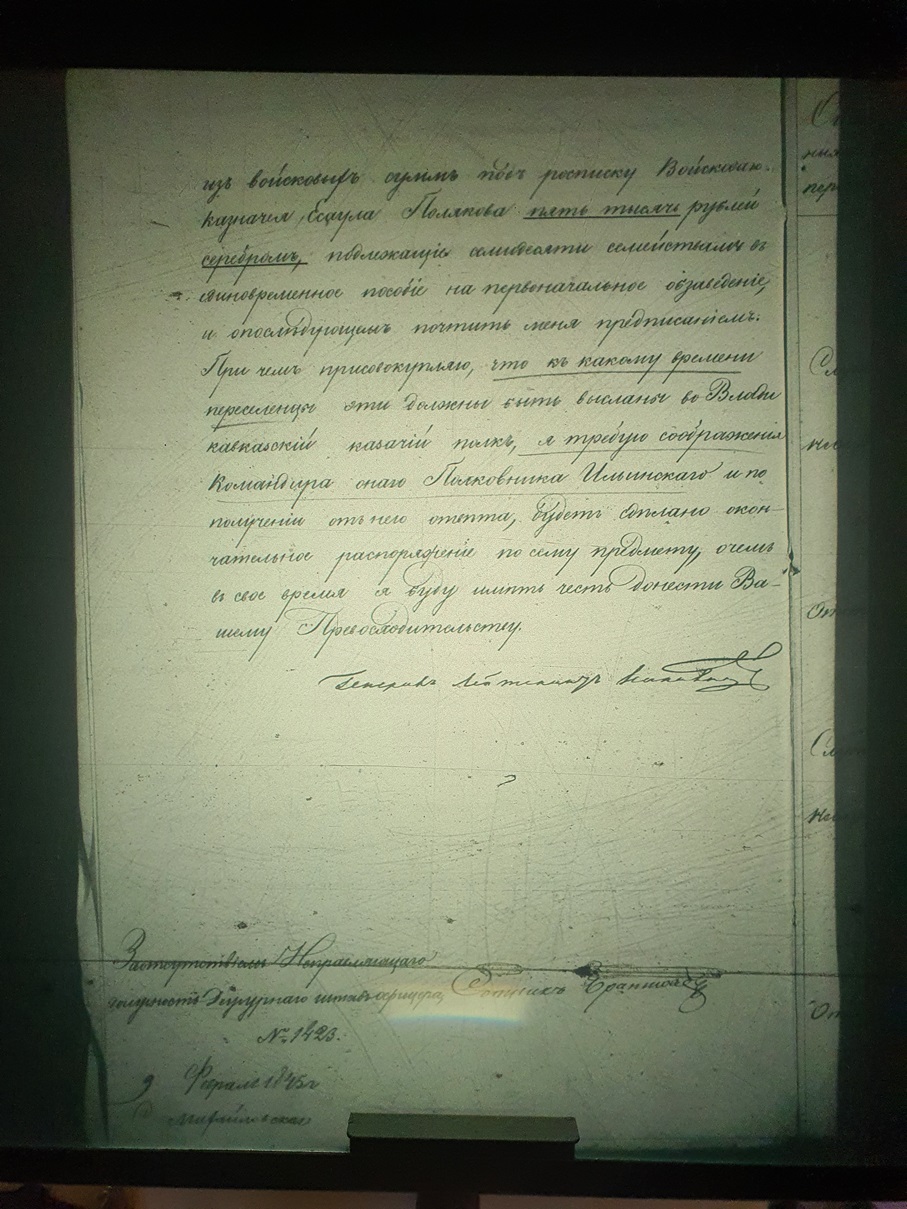 изъ войсковыхъ суммъ подъ росписку Войсковаго
казначея, Есаула Полякова пять тысячь рублей
серебромъ, подлежащіе семидесяти семействамъ въ
единовременное пособіе на первоначальное обзаведеніе,
и опослѣдующемъ почтить меня предписаніемъ.
При чемъ присовокупляю, что къ какому времени
переселенцы эти должны быть высланы во Влади
кавказскій казачій полкъ, я требую соображенія
Командира онаго Полковника Ильинскаго и по
полученіи отъ него ответа, будетъ сдѣлано окон-
чательное распоряженіе по сему предмету, очемъ
въ свое время я буду имѣть честь донести Ва-
шему Превосходительству.
Генералъ Лейтенантъ
Исправляющаго
должность Дежурнаго штабъ офицера, Сотникъ
№ 1423.
9 Февраля 1845 г